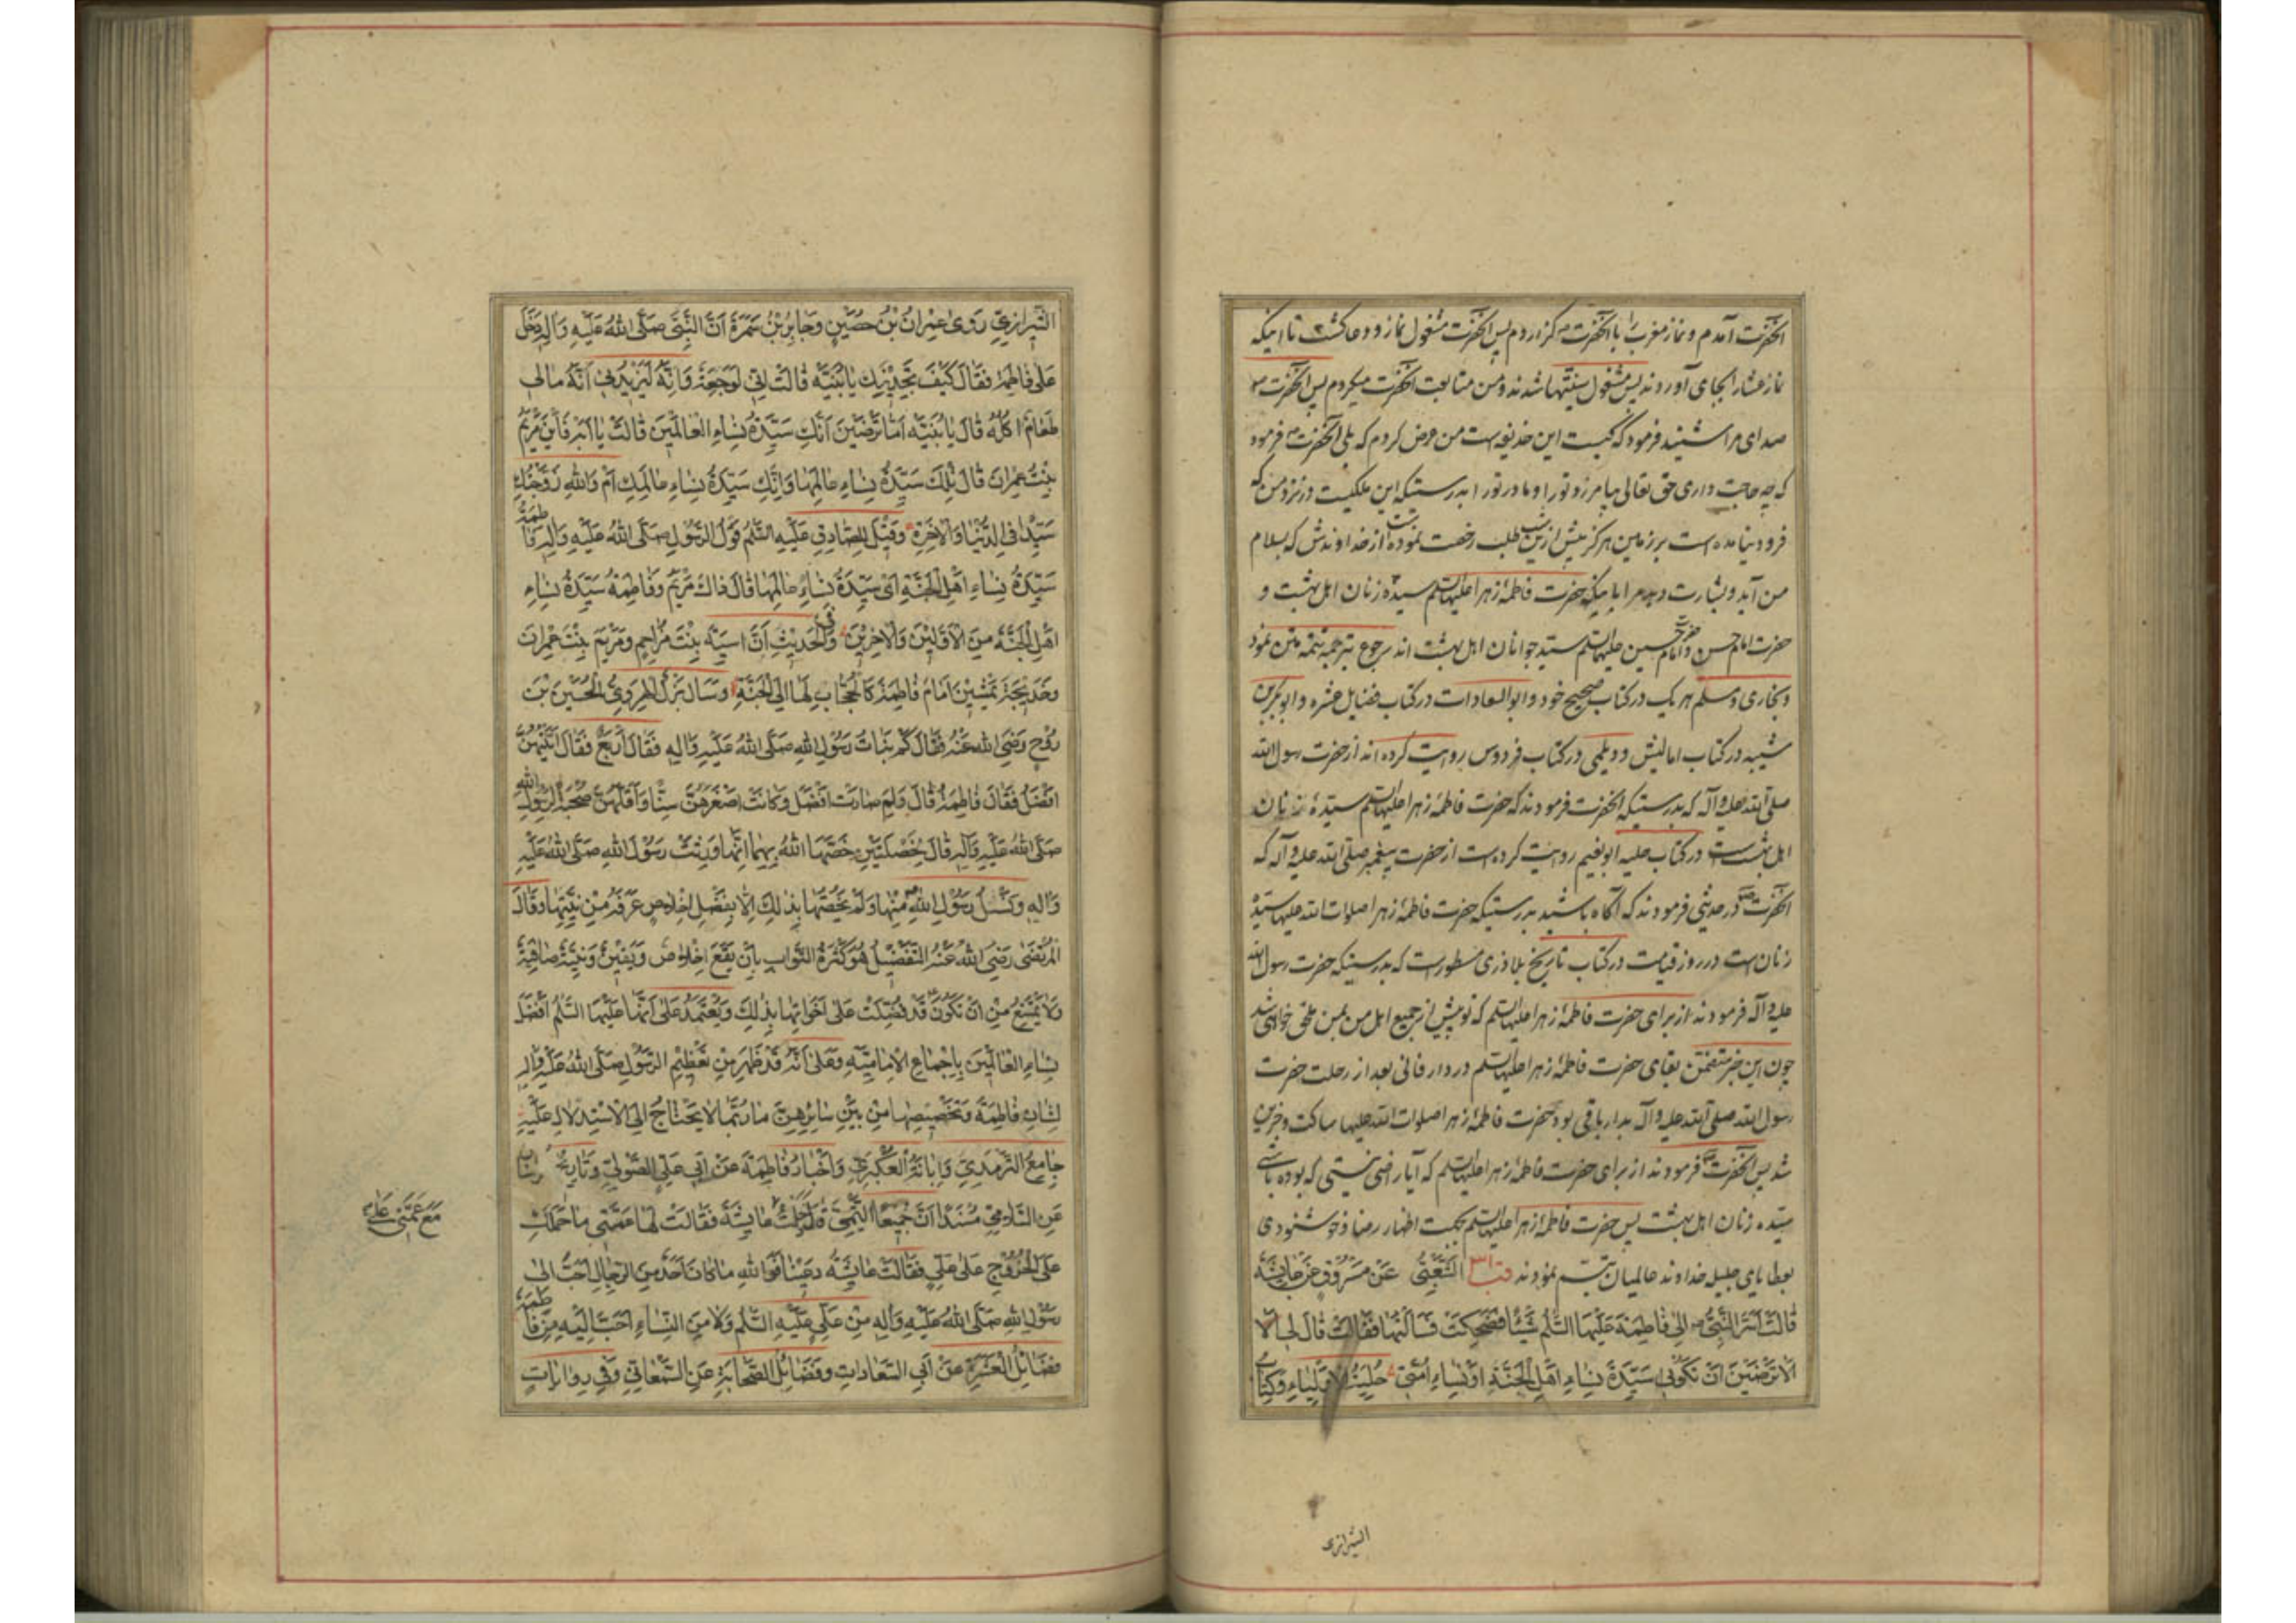 آنحضرت آمدم و نماز مغرب را با آنحضرت گزاردم پس آنحضرت مشغول نماز و دعا گشت تا اینکه
نماز عشا را بجای آوردند پس مشغول سنتها شدند و من متابعت آنحضرت میکردم پس آنحضرت
صدای مرا شنیدند فرمود که کیست این حذیفه است من عرض کردم که بلی آنحضرت فرمود
که چه حاجت داری حق تعالی بیامرزد تو را و مادر تو را بدرستیکه این ملکیست در نزد من که
فرود نیامده است بر زمین هرگز پیش از این شب طلب رخصت نموده است از خداوندش که بسلام
من آید و بشارت دهد مرا باینکه حضرت فاطمهٔ زهرا علیها السلم سیدهٔ زنان اهل بهشت و
حضرت امام حسن و حضرت امام حسین علیهما السلم سید جوانان اهل بهشت اند رجوع بترجمهٔ تتمهٔ متن نمود
و بخاری و مسلم هر یک در کتاب صحیح خود و ابو السعادات در کتاب فضایل عشره و ابو بکر بن
شیبه در کتاب امالیش و دیلمی در کتاب فردوس روایت کرده اند از حضرت رسول الله
صلی الله علیه و آله که بدرستیکه آنحضرت فرمودند که حضرت فاطمهٔ زهرا علیها السلم سیدهٔ زنان
اهل بهشت است در کتاب حلیه ابو نعیم روایت کرده است از حضرت پیغمبر صلی الله علیه و آله که
آنحضرت در حدیثی فرمودند که آگاه باشید بدرستیکه حضرت فاطمهٔ زهرا صلوات الله علیها سیدهٔ
زنان است در روز قیامت در کتاب تاریخ بلاذری مسطور است که بدرستیکه حضرت رسول الله
علیه و آله فرمودند از برای حضرت فاطمهٔ زهرا علیها السلم که تو پیش از جمیع اهل من بمن ملحق خواهی شد
چون این خبر متضمن بقای حضرت فاطمهٔ زهرا علیها السلم در دار فانی بعد از رحلت حضرت
رسول الله صلی الله علیه و آله بدار باقی بود حضرت فاطمهٔ زهرا صلوات الله علیها ساکت و حزین
شد پس آنحضرت فرمودند از برای حضرت فاطمهٔ زهرا علیها السلم که آیا راضی نیستی که بوده باشی
سیده زنان اهل بهشت پس حضرت فاطمهٔ زهرا علیها السلم بجهت اظهار رضا و خوشنودی
بعطایای جلیله خداوند عالمیان تبسم نمودند الشَّعْبِیُّ عَنْ مَسْرُوقٍ عَنْ عَایِشَةَ
قَالَتْ اَسَرَّ النَّبِیُّ اِلٰی فَاطِمَةَ عَلَیْهَا السَّلٰمُ شَیْئًا فَضَحِکَتْ فَسَاَلْتُهَا فَقَالَتْ قَالَ لِی
اَلَا تَرْضَیْنَ اَنْ تَکُونِی سَیِّدَةَ نِسَاءِ اَهْلِ الْجَنَّةِ اَوْ نِسَاءِ اُمَّتِی حُلِیَّةُ الْاَوْلِیَاءِ وَکِتَابُ
الشیرازی
الشِّیرَازِیِّ رَوٰی عِمْرَانُ بْنُ حُصَیْنٍ وَجَابِرُ بْنُ سَمُرَةَ اَنَّ النَّبِیَّ صَلَّی اللهُ عَلَیْهِ وَاٰلِهِ دَخَلَ
عَلٰی فَاطِمَةَ فَقَالَ کَیْفَ تَجِدِیْنَكِ یَا بُنَیَّةِ قَالَتْ اِنِّی لَوَجِعَةٌ وَاِنَّهُ لَیَزِیْدُنِی اَنَّهُ مَالِی
طَعَامٌ اٰکُلُهُ قَالَ یَا بُنَیَّةِ اَمَا تَرْضَیْنَ اَنَّكِ سَیِّدَةُ نِسَاءِ الْعَالَمِیْنَ قَالَتْ یَا اَبَهْ فَاَیْنَ مَرْیَمُ
بِنْتُ عِمْرَانَ قَالَ تِلْكَ سَیِّدَةُ نِسَاءِ عَالَمِهَا وَاِنَّكِ سَیِّدَةُ نِسَاءِ عَالَمِكِ اَمْ وَاللهِ زَوَّجْتُكِ
سَیِّدًا فِی الدُّنْیَا وَالْاٰخِرَةِ وَقِیْلَ لِلصَّادِقِ عَلَیْهِ السَّلٰمُ قَوْلُ الرَّسُوْلِ صَلَّی اللهُ عَلَیْهِ وَاٰلِهِ فَاطِمَةُ
سَیِّدَةُ نِسَاءِ اَهْلِ الْجَنَّةِ اَیْ سَیِّدَةُ نِسَاءِ عَالَمِهَا قَالَ ذَاكَ مَرْیَمُ وَفَاطِمَةُ سَیِّدَةُ نِسَاءِ
اَهْلِ الْجَنَّةِ مِنَ الْاَوَّلِیْنَ وَالْاٰخِرِیْنَ وَفِی الْحَدِیْثِ اَنَّ اٰسِیَةَ بِنْتَ مُزَاحِمٍ وَمَرْیَمَ بِنْتَ عِمْرَانَ
وَخَدِیْجَةَ یَمْشِیْنَ اَمَامَ فَاطِمَةَ کَالْحُجَّابِ لَهَا اِلَی الْجَنَّةِ وَسَاَلَ بَزَلُ الْهَرَوِیُّ الْحُسَیْنَ بْنَ
رُوْحٍ رَضِیَ اللهُ عَنْهُ فَقَالَ کَمْ بَنَاتُ رَسُوْلِ اللهِ صَلَّی اللهُ عَلَیْهِ وَاٰلِهِ فَقَالَ اَرْبَعٌ فَقَالَ اَیَّتُهُنَّ
اَفْضَلُ فَقَالَ فَاطِمَةُ قَالَ وَلِمَ صَارَتْ اَفْضَلَ وَکَانَتْ اَصْغَرَهُنَّ سِنًّا وَاَقَلَّهُنَّ صُحْبَةً لِرَسُوْلِ اللهِ
صَلَّی اللهُ عَلَیْهِ وَاٰلِهِ قَالَ لِخَصْلَتَیْنِ خَصَّهَا اللهُ بِهِمَا اِنَّهَا وَرِثَتْ رَسُوْلَ اللهِ صَلَّی اللهُ عَلَیْهِ
وَاٰلِهِ وَنَسْلُ رَسُوْلِ اللهِ مِنْهَا وَلَمْ یَخُصَّهَا بِذٰلِكَ اِلَّا بِفَضْلِ اِخْلَاصٍ عَرَفَهُ مِنْ نِیَّتِهَا وَقَالَ
الْمُرْتَضٰی رَضِیَ اللهُ عَنْهُ التَّفْضِیْلُ هُوَ کَثْرَةُ الثَّوَابِ بِاَنْ یَقَعَ اِخْلَاصٌ وَیَقِیْنٌ وَنِیَّةٌ صَافِیَةٌ
وَلَا یَمْتَنِعُ مِنْ اَنْ تَکُوْنَ قَدْ فُضِّلَتْ عَلٰی اَخَوَاتِهَا بِذٰلِكَ وَیُعْتَمَدُ عَلٰی اَنَّهَا عَلَیْهَا السَّلٰمُ اَفْضَلُ
نِسَاءِ الْعَالَمِیْنَ بِاِجْمَاعِ الْاِمَامِیَّةِ وَعَلٰی اَنَّهُ قَدْ ظَهَرَ مِنْ تَعْظِیْمِ الرَّسُوْلِ صَلَّی اللهُ عَلَیْهِ وَاٰلِهِ
لِشَانِ فَاطِمَةَ وَتَخْصِیْصِهَا مِنْ بَیْنِ سَائِرِهِنَّ مَا رُبَّمَا لَا یَحْتَاجُ اِلَی الْاِسْتِدْلَالِ عَلَیْهِ
جَامِعُ التِّرْمِذِیِّ وَاِبَانَةُ الْعُکْبَرِیِّ وَاَخْبَارُ فَاطِمَةَ عَنْ اَبِی عَلِیٍّ الصَّوْلِیِّ وَتَارِیْخُ
عَنِ السَّلَامِیِّ مُسْنَدًا اَنَّ جُمَیْعًا التَّیْمِیَّ قَالَ دَخَلْتُ عَایِشَةَ فَقَالَتْ لَهَا عَمَّتِی مَا حَمَلَكِ
مَعَ عَمَّتِی عَلٰی
عَلَی الْخُرُوْجِ عَلٰی عَلِیٍّ فَقَالَتْ عَایِشَةُ دَعِیْنَا فَوَاللهِ مَا کَانَ اَحَدٌ مِنَ الرِّجَالِ اَحَبَّ اِلٰی
رَسُوْلِ اللهِ صَلَّی اللهُ عَلَیْهِ وَاٰلِهِ مِنْ عَلِیٍّ عَلَیْهِ السَّلٰمُ وَلَا مِنَ النِّسَاءِ اَحَبَّ اِلَیْهِ مِنْ فَاطِمَةَ
فَضَائِلُ الْعَشَرَةِ عَنْ اَبِی السَّعَادَاتِ وَفَضَائِلُ الصَّحَابَةِ عَنِ السَّمْعَانِیِّ وَفِی رِوَایَاتٍ